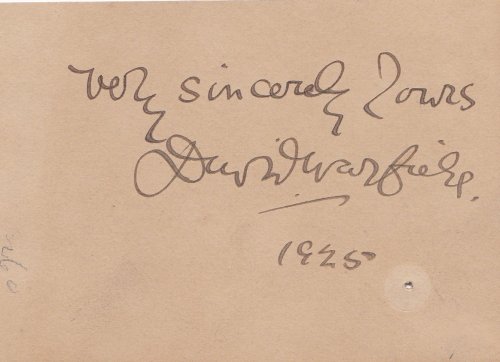 very sincerely Yours
David Warfield.
1925